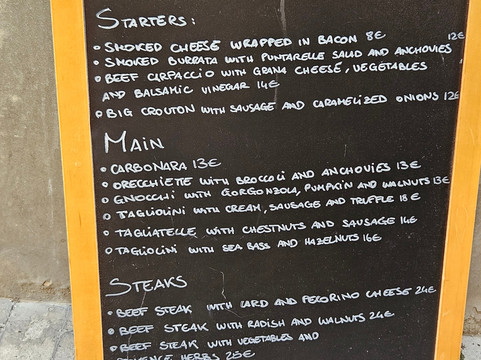 STARTERS:
• SMOKED CHEESE WRAPPED IN BACON 8€
• SMOKED BURRATA WITH PUNTARELLE SALAD AND ANCHOVIES 12€
• BEEF CARPACCIO WITH GRANA CHEESE, VEGETABLES
AND BALSAMIC VINEGAR 14€
• BIG CROUTON WITH SAUSAGE AND CARAMELIZED ONIONS 12€
MAIN
• CARBONARA 13€
• ORECCHIETTE WITH BROCCOLI AND ANCHOVIES 13€
• GNOCCHI WITH GORGONZOLA, PUMPKIN AND WALNUTS 13€
• TAGLIOLINI WITH CREAM, SAUSAGE AND TRUFFLE 18€
• TAGLIATELLE WITH CHESTNUTS AND SAUSAGE 14€
• TAGLIOLINI WITH SEA BASS AND HAZELNUTS 16€
STEAKS
• BEEF STEAK WITH LARD AND PECORINO CHEESE 24€
• BEEF STEAK WITH RADISH AND WALNUTS 24€
• BEEF STEAK WITH VEGETABLES AND
HERBS 25€